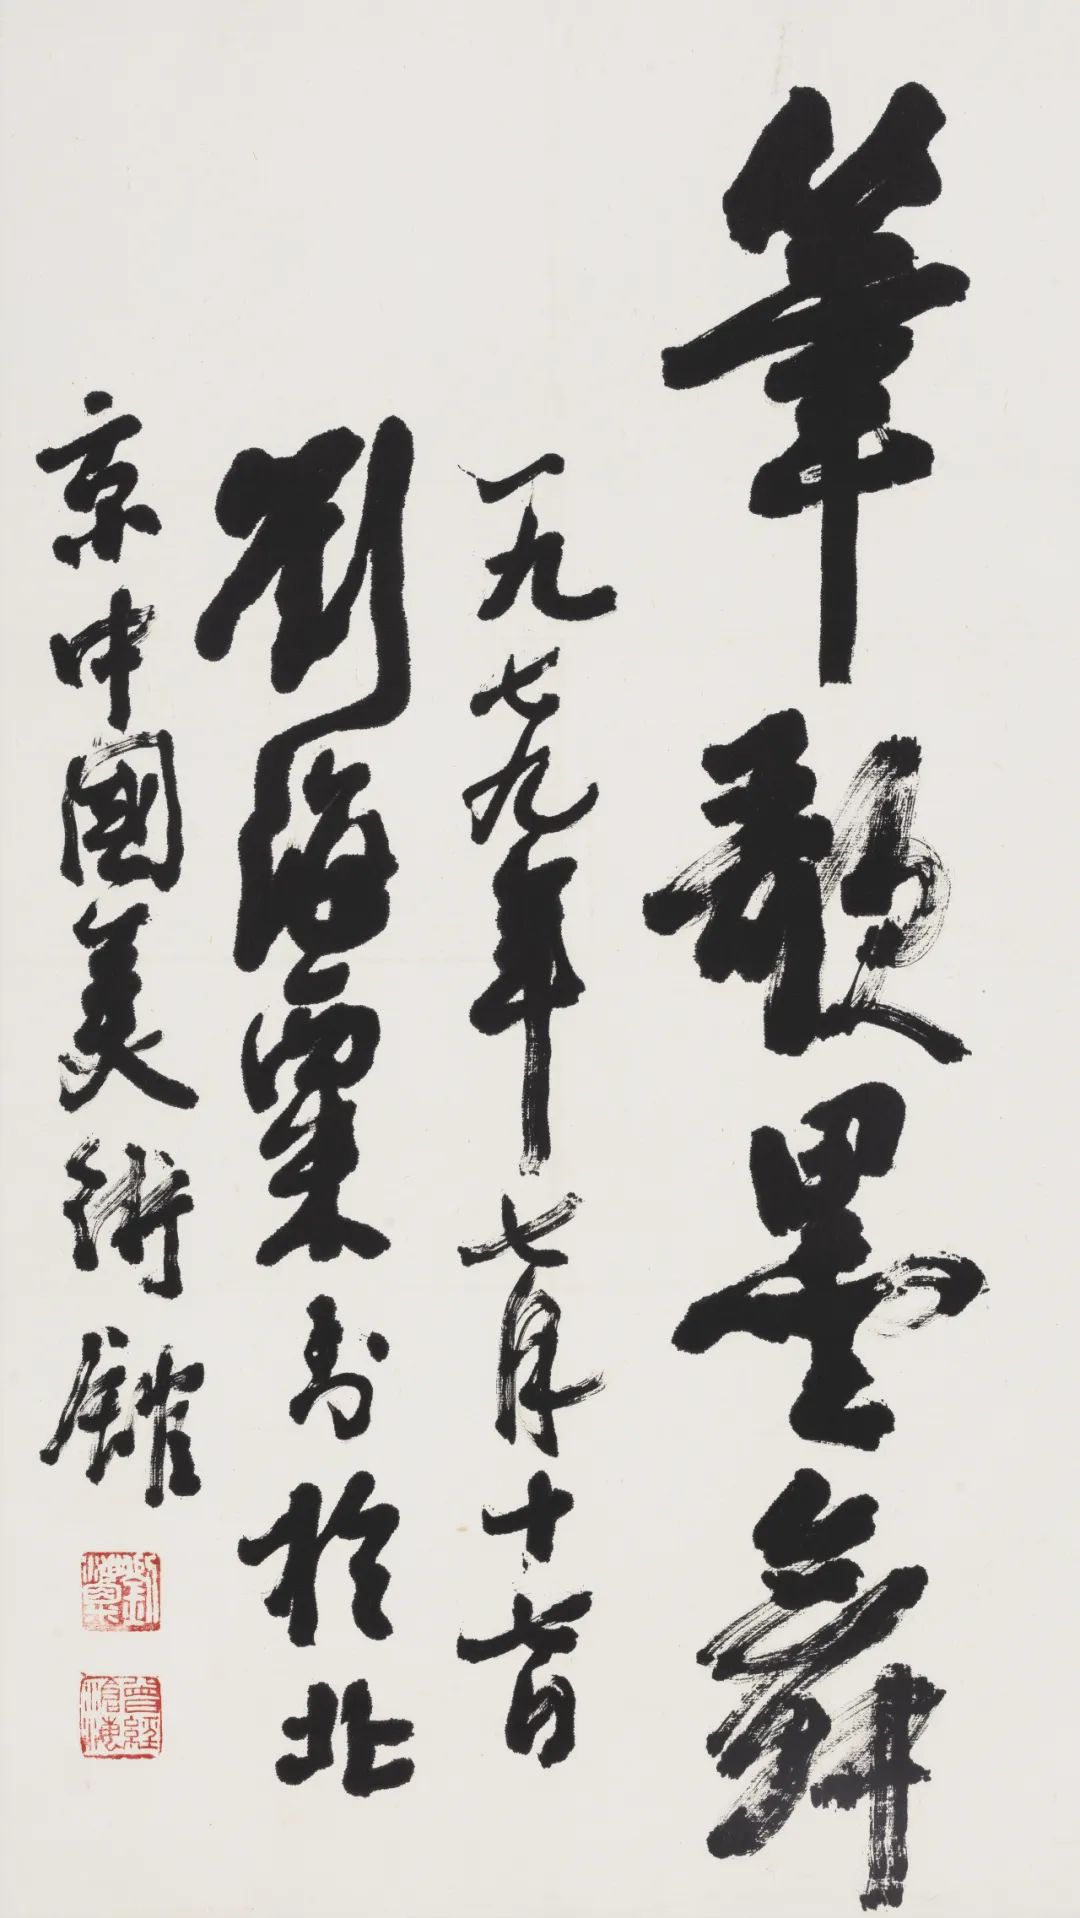 筆歌墨舞
一九七九年七月十七日
劉海粟書於北
京中國美術館
劉海粟
曾經滄海